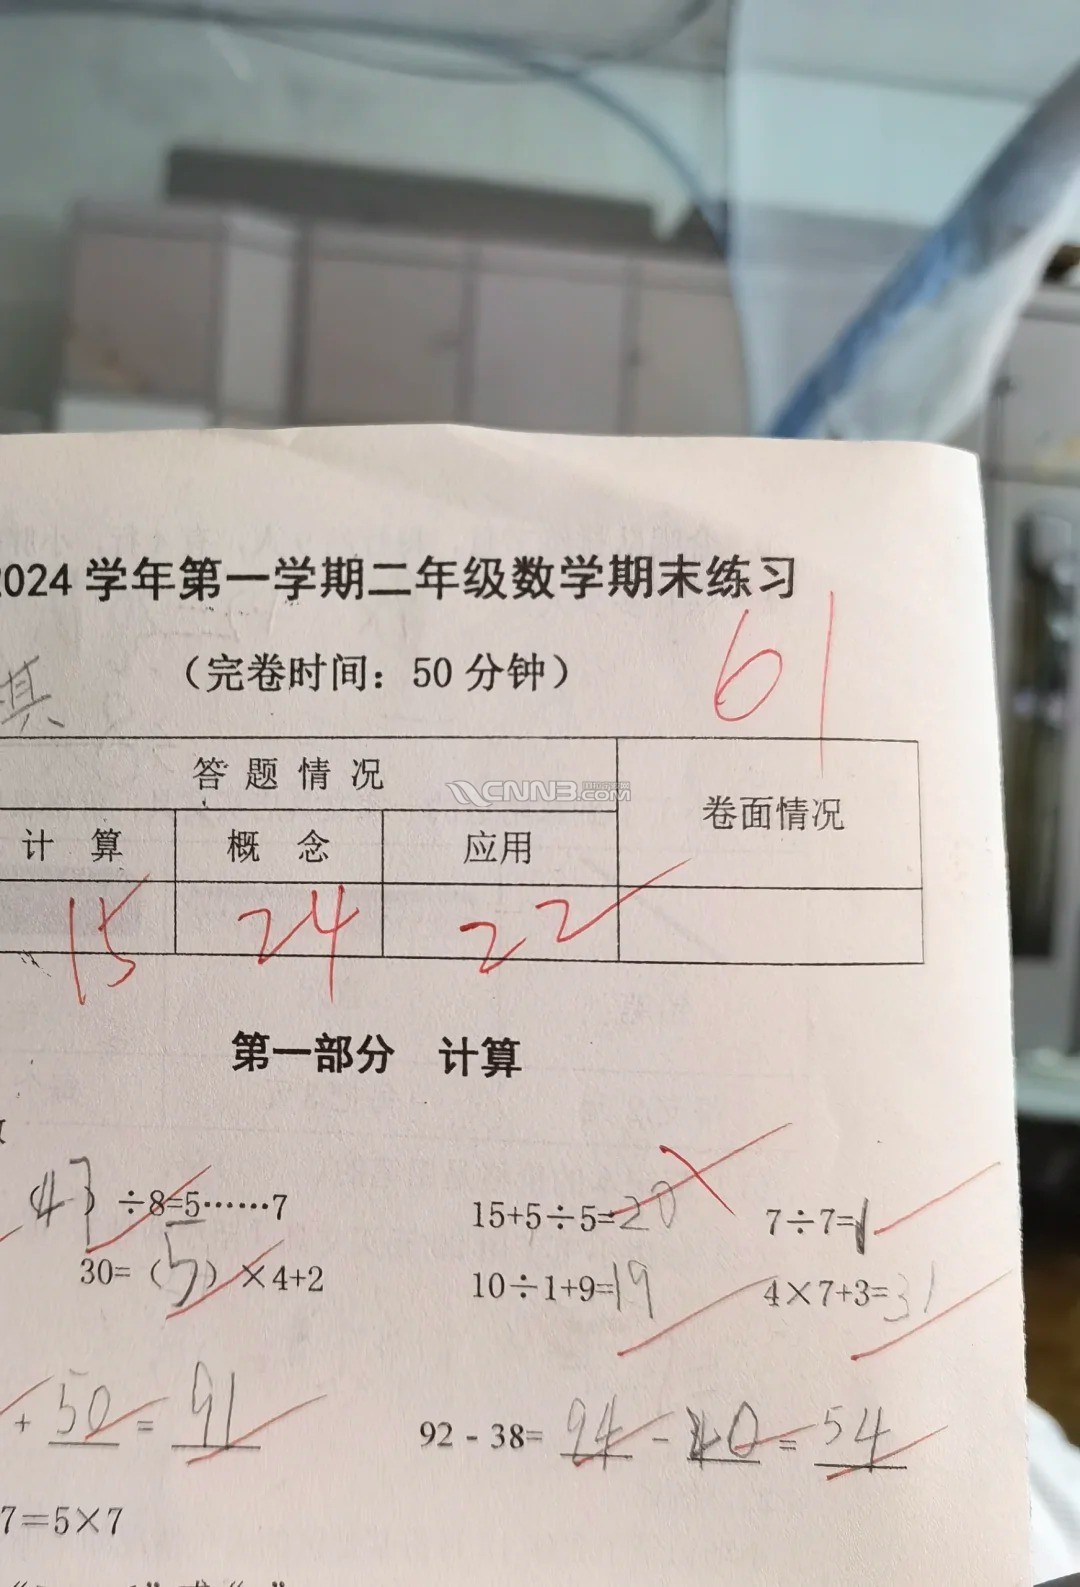 2024 学年第一学期二年级数学期末练习
61
（完卷时间：50 分钟）
答 题 情 况
卷面情况
CNNB.COM
计 算 概 念 应用
15 24 22
第一部分 计算
(47) ÷8=5……7 15+5÷5=20 7÷7=1
30=（5）×4+2 10÷1+9=19 4×7+3=31
+ 50 = 91 92 - 38= 94 - 40 = 54
7=5×7